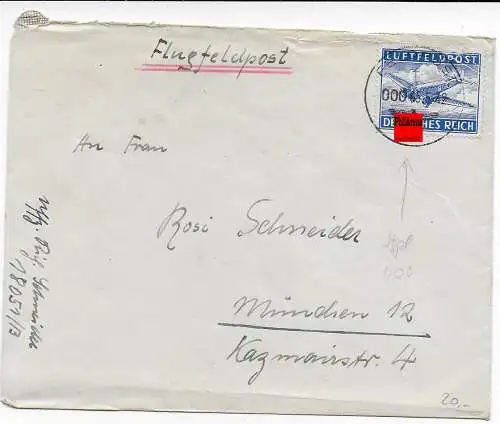 Flugfeldpost
LUFTFELDPOST
000
DEUTSCHES REICH
An Frau
Rosi Schneider
München 12
Kazmairstr. 4
Schneider
18051/B
20.-